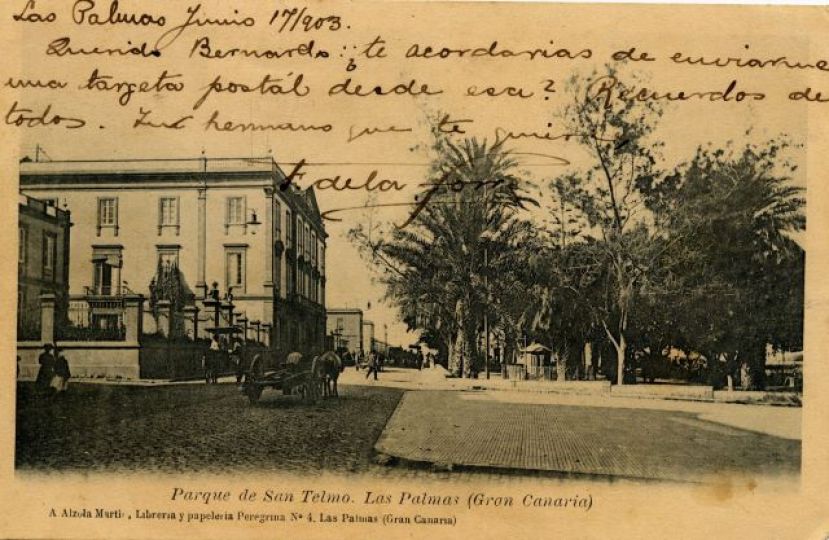 Las Palmas Junio 17/903.
Querido Bernardo: ¿te acordarias de enviarme
una targeta postál desde esa? Recuerdos de
todos. Tu hermano que te quiere
F de la Torre
Parque de San Telmo. Las Palmas (Gran Canaria)
A Alzola Martin, Libreria y papeleria Peregrina Nº 4, Las Palmas (Gran Canaria)